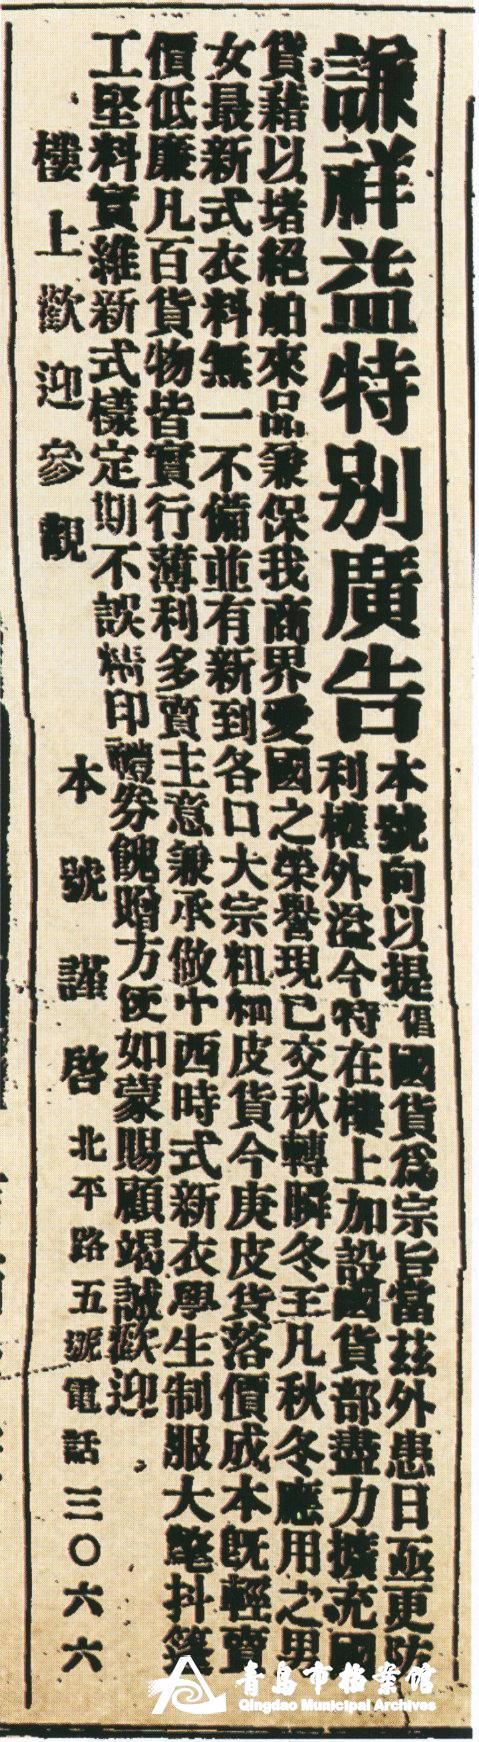 謙祥益特別廣告
本號向以提倡國貨爲宗旨當茲外患日亟更防
利權外溢今特在樓上加設國貨部盡力擴充國
貨藉以堵絕舶來品兼保我商界愛國之榮譽現已交秋轉瞬冬至凡秋冬應用之男
女最新式衣料無一不備並有新到各口大宗粗細皮貨今庚皮貨落價成本旣輕賣
價低廉凡百貨物皆實行薄利多賣主意兼承做中西時式新衣學生制服大氅抖篷
工堅料實維新式樣定期不誤精印禮券餽贈方便如蒙賜顧竭誠歡迎
樓上歡迎參觀
本號謹啓 北平路五號電話三〇六六
青島市檔案館
Qingdao Municipal Archives